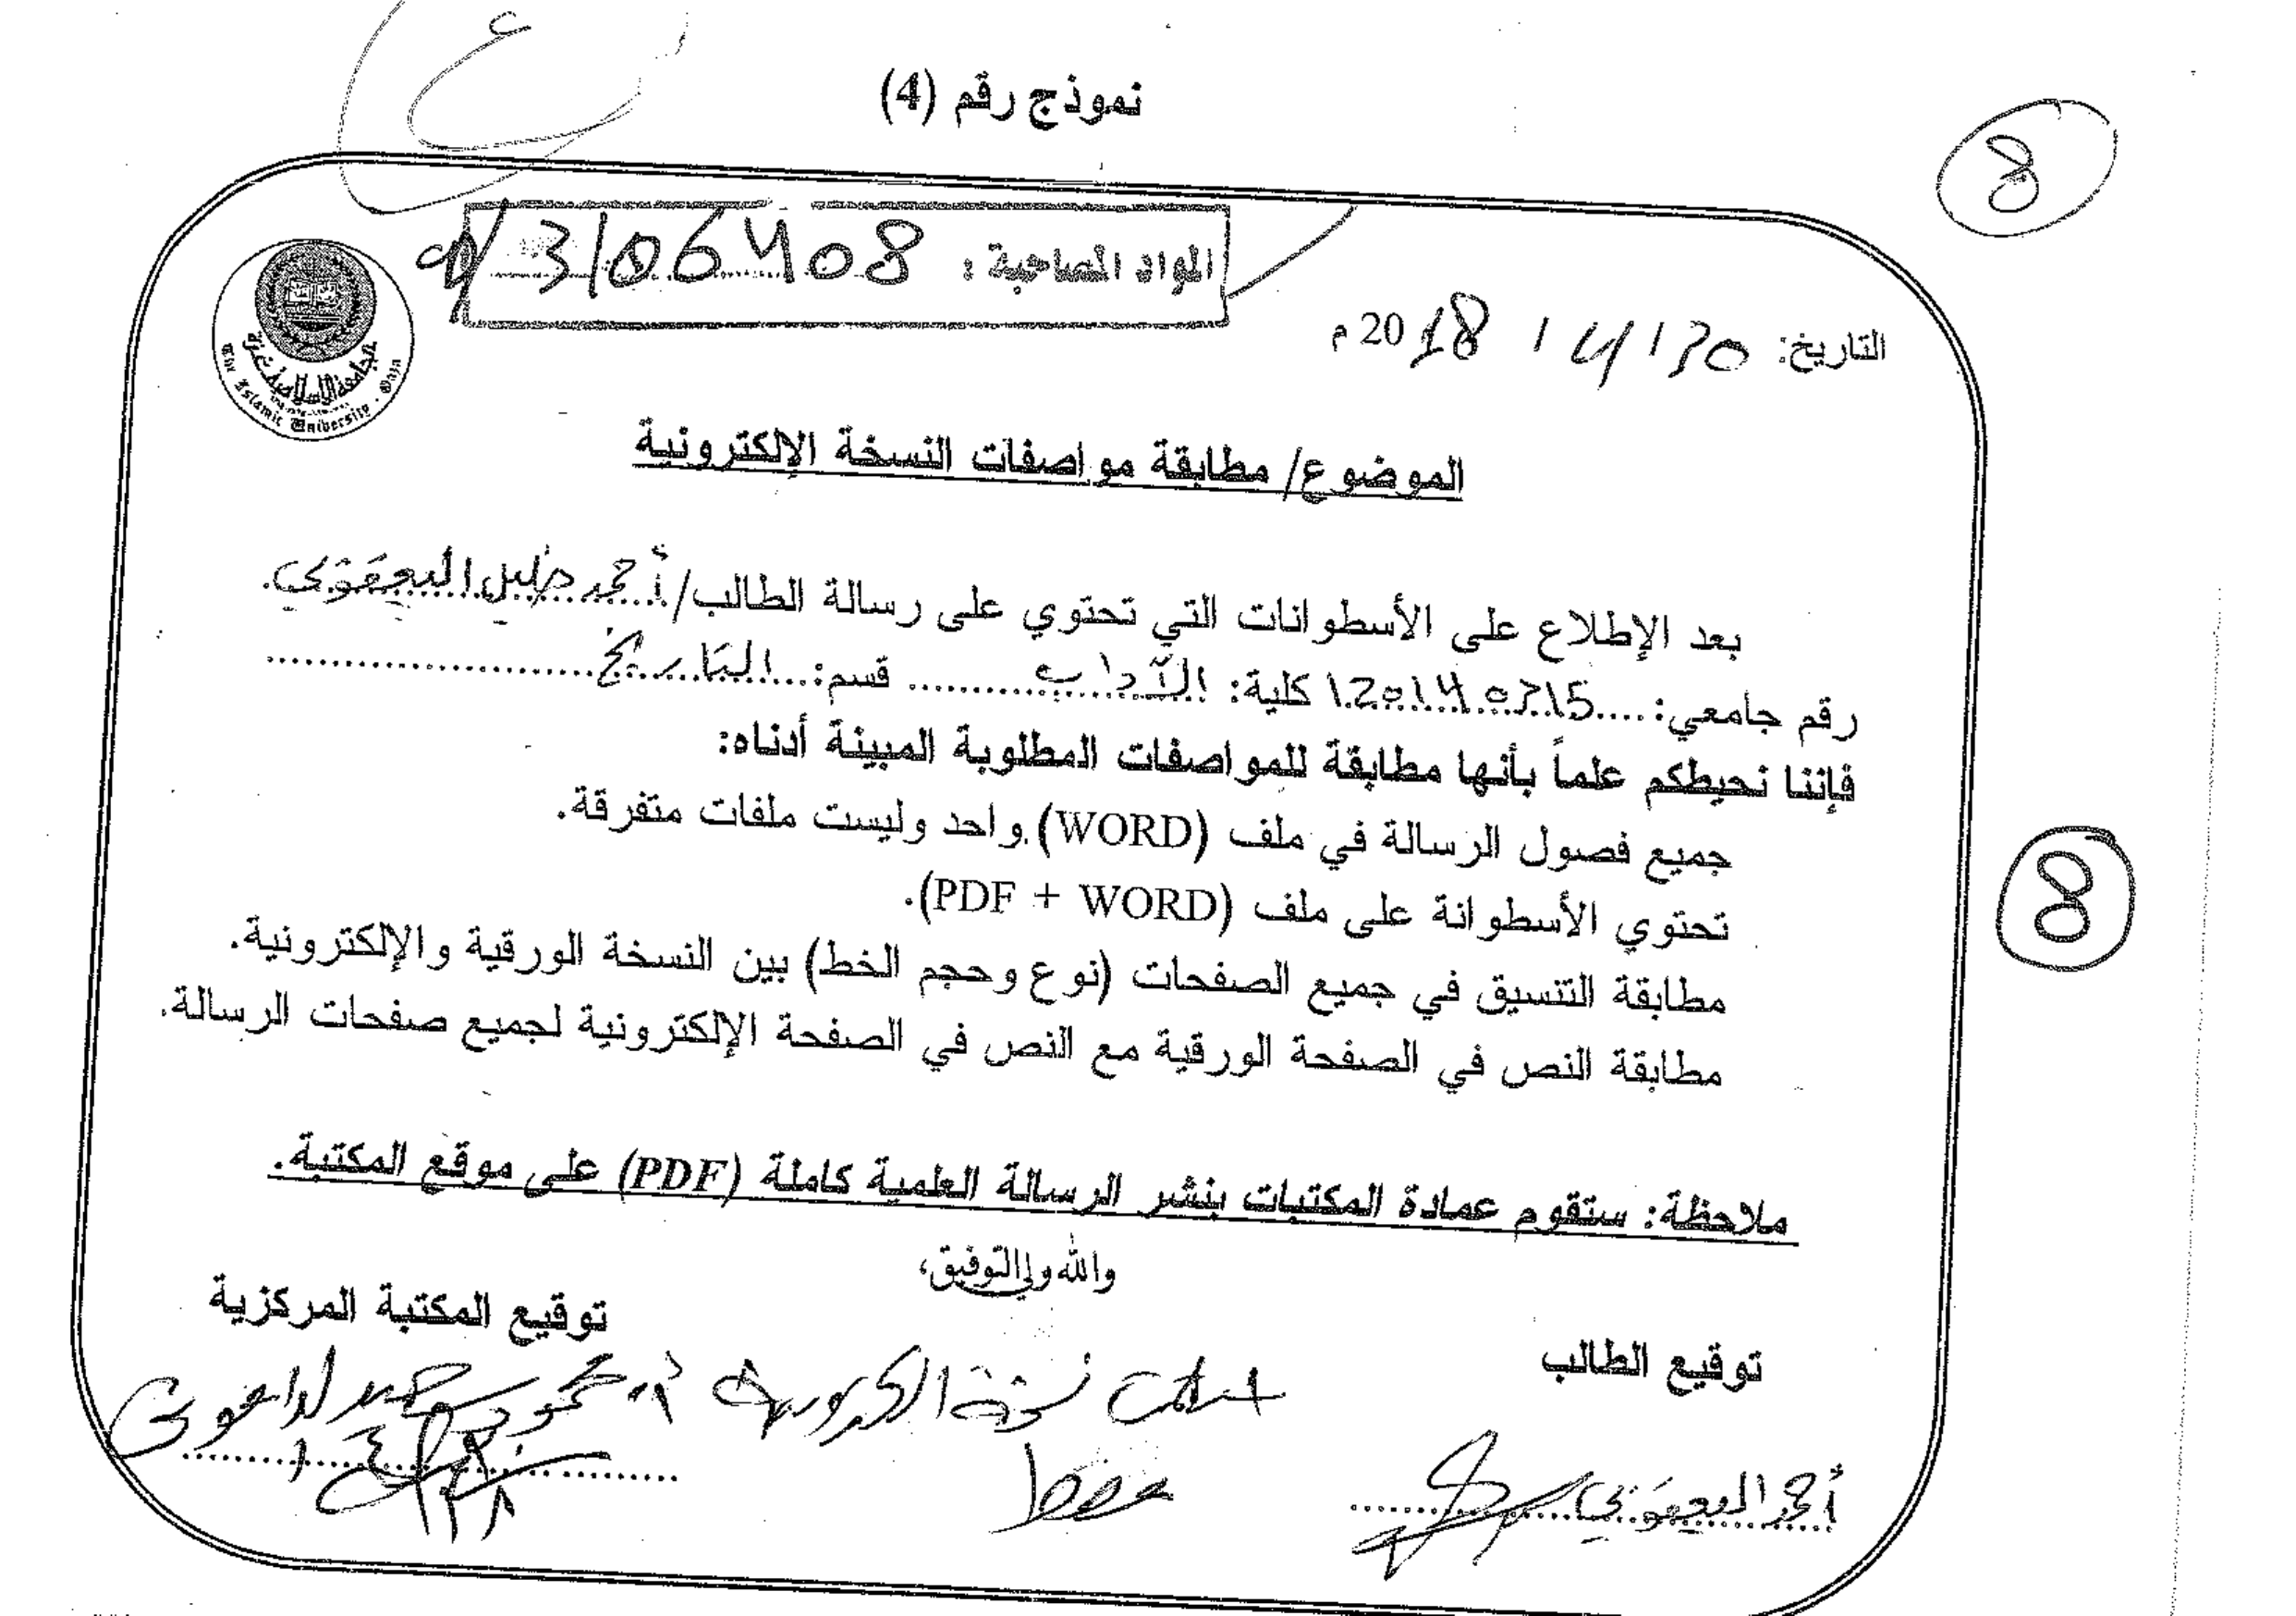 نموذج رقم (4)
8
المواد المصاحبة : 3106408
التاريخ: 30 / 4 / 2018 م
الجامعة الإسلامية غزة
The Islamic University - Gaza
الموضوع/ مطابقة مواصفات النسخة الإلكترونية
بعد الإطلاع على الأسطوانات التي تحتوي على رسالة الطالب/ أحمد خليل اليعقوبي
رقم جامعي: 120140715 كلية: الآداب قسم: التاريخ
فإننا نحيطكم علماً بأنها مطابقة للمواصفات المطلوبة المبينة أدناه:
جميع فصول الرسالة في ملف (WORD) واحد وليست ملفات متفرقة.
تحتوي الأسطوانة على ملف (PDF + WORD).
8
مطابقة التنسيق في جميع الصفحات (نوع وحجم الخط) بين النسخة الورقية والإلكترونية.
مطابقة النص في الصفحة الورقية مع النص في الصفحة الإلكترونية لجميع صفحات الرسالة.
ملاحظة: ستقوم عمادة المكتبات بنشر الرسالة العلمية كاملة (PDF) على موقع المكتبة.
والله ولي التوفيق،
توقيع الطالب
توقيع المكتبة المركزية
استلمت نسخة الكترونية
فقط
أحمد اليعقوبي